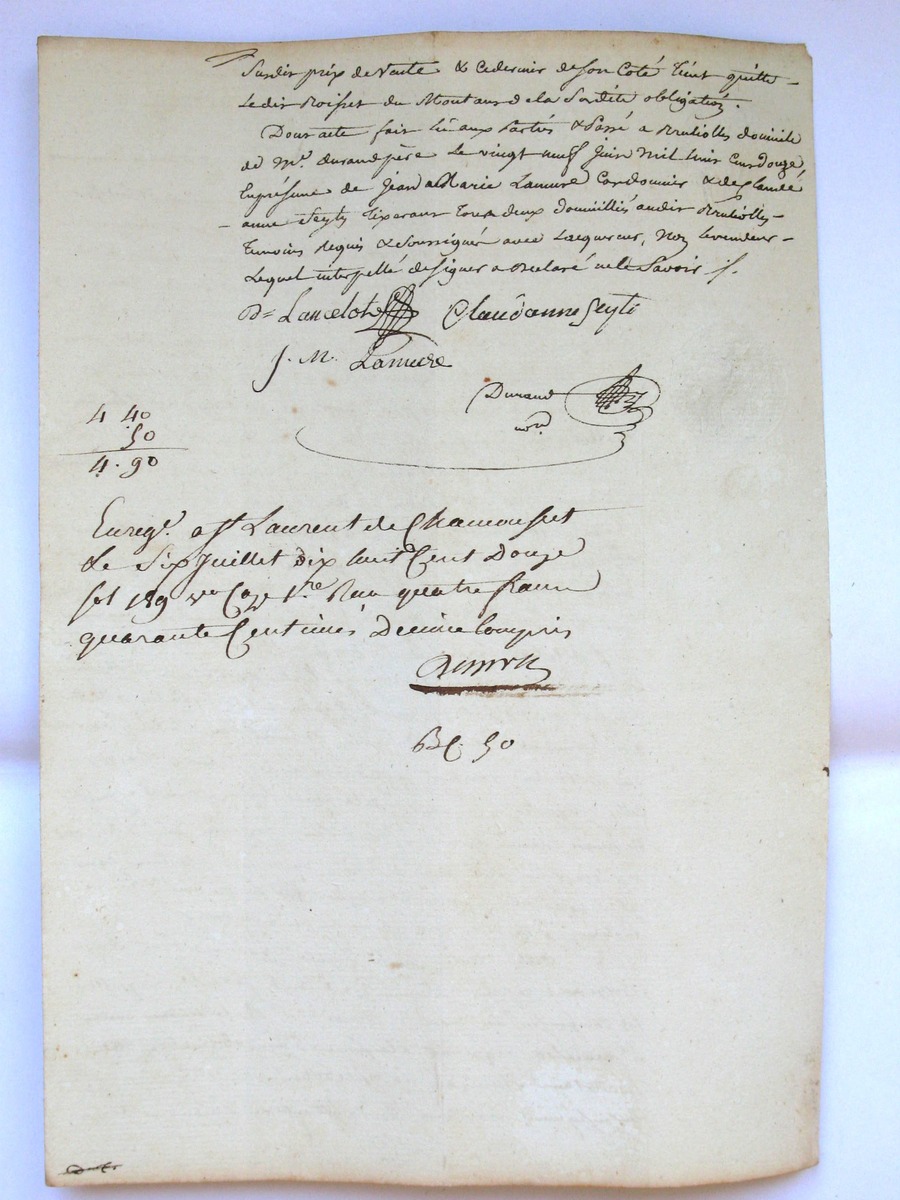 Susdit prix de vente & ce dernier de son Coté tient quitte
Ledit Roisset du Montant de la Susdite obligation.
Dont acte fait lû aux Parties & Passé a Brulliolles domicile
de Mr. durand père Le vingt neuf Juin Mil huit Cent douze
En présence de Jean Marie Lamure Cordonnier & de Claude
anne Seyty Tixerant Tous deux domiciliés audit Brulliolles
Temoins requis & soussignés avec Lacquereur, Non Levendeur
Lequel interpellé de signer a declaré ne le Savoir /.
Bt Lancelot Claudanne Seyti
J. M. Lamure
Durand
nore
4 40
.50
4.90
Enregé a St Laurent de Chamousset
Le Six Juillet dix huit Cent Douze
fol 189 vo Caze 1re Reçu quatre francs
quarante Centimes Decime Compris
50